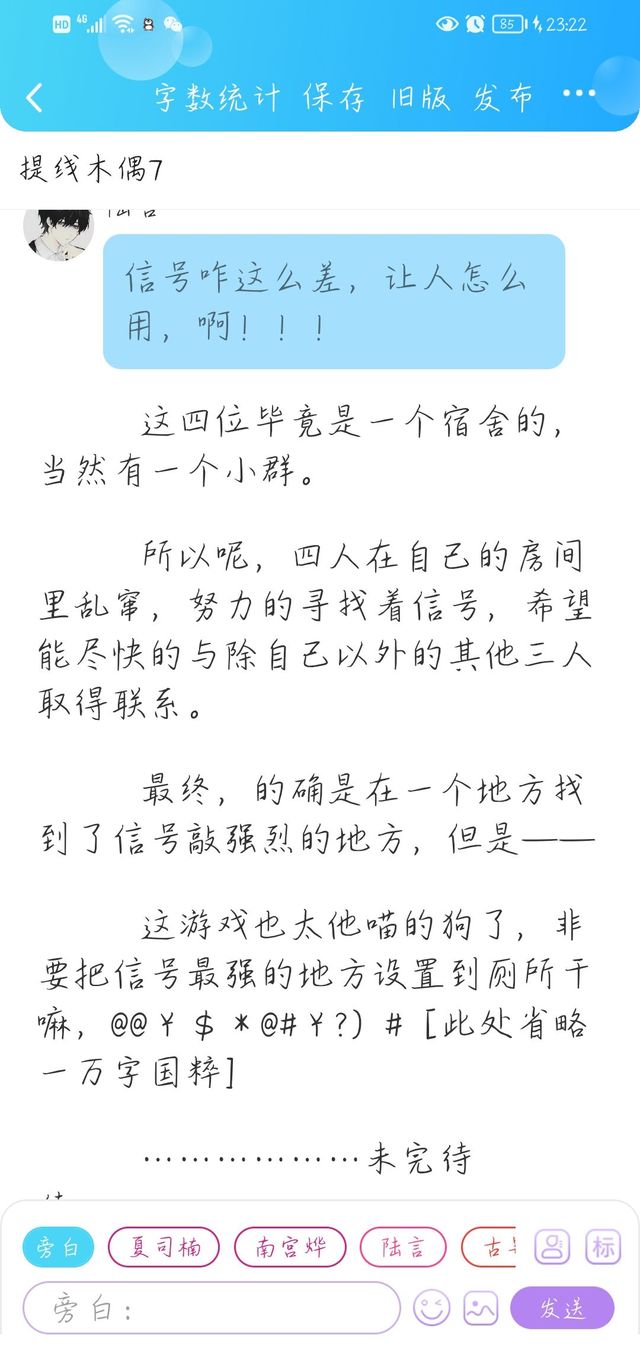 HD 4G 85 23:22
字数统计 保存 旧版 发布
提线木偶7
陆言
信号咋这么差，让人怎么
用，啊！！！
这四位毕竟是一个宿舍的，
当然有一个小群。
所以呢，四人在自己的房间
里乱窜，努力的寻找着信号，希望
能尽快的与除自己以外的其他三人
取得联系。
最终，的确是在一个地方找
到了信号敲强烈的地方，但是——
这游戏也太他喵的狗了，非
要把信号最强的地方设置到厕所干
嘛，@@￥＄*@#￥?）#［此处省略
一万字国粹］
………………未完待
旁白 夏司楠 南宫烨 陆言 古
标
旁白：
发送